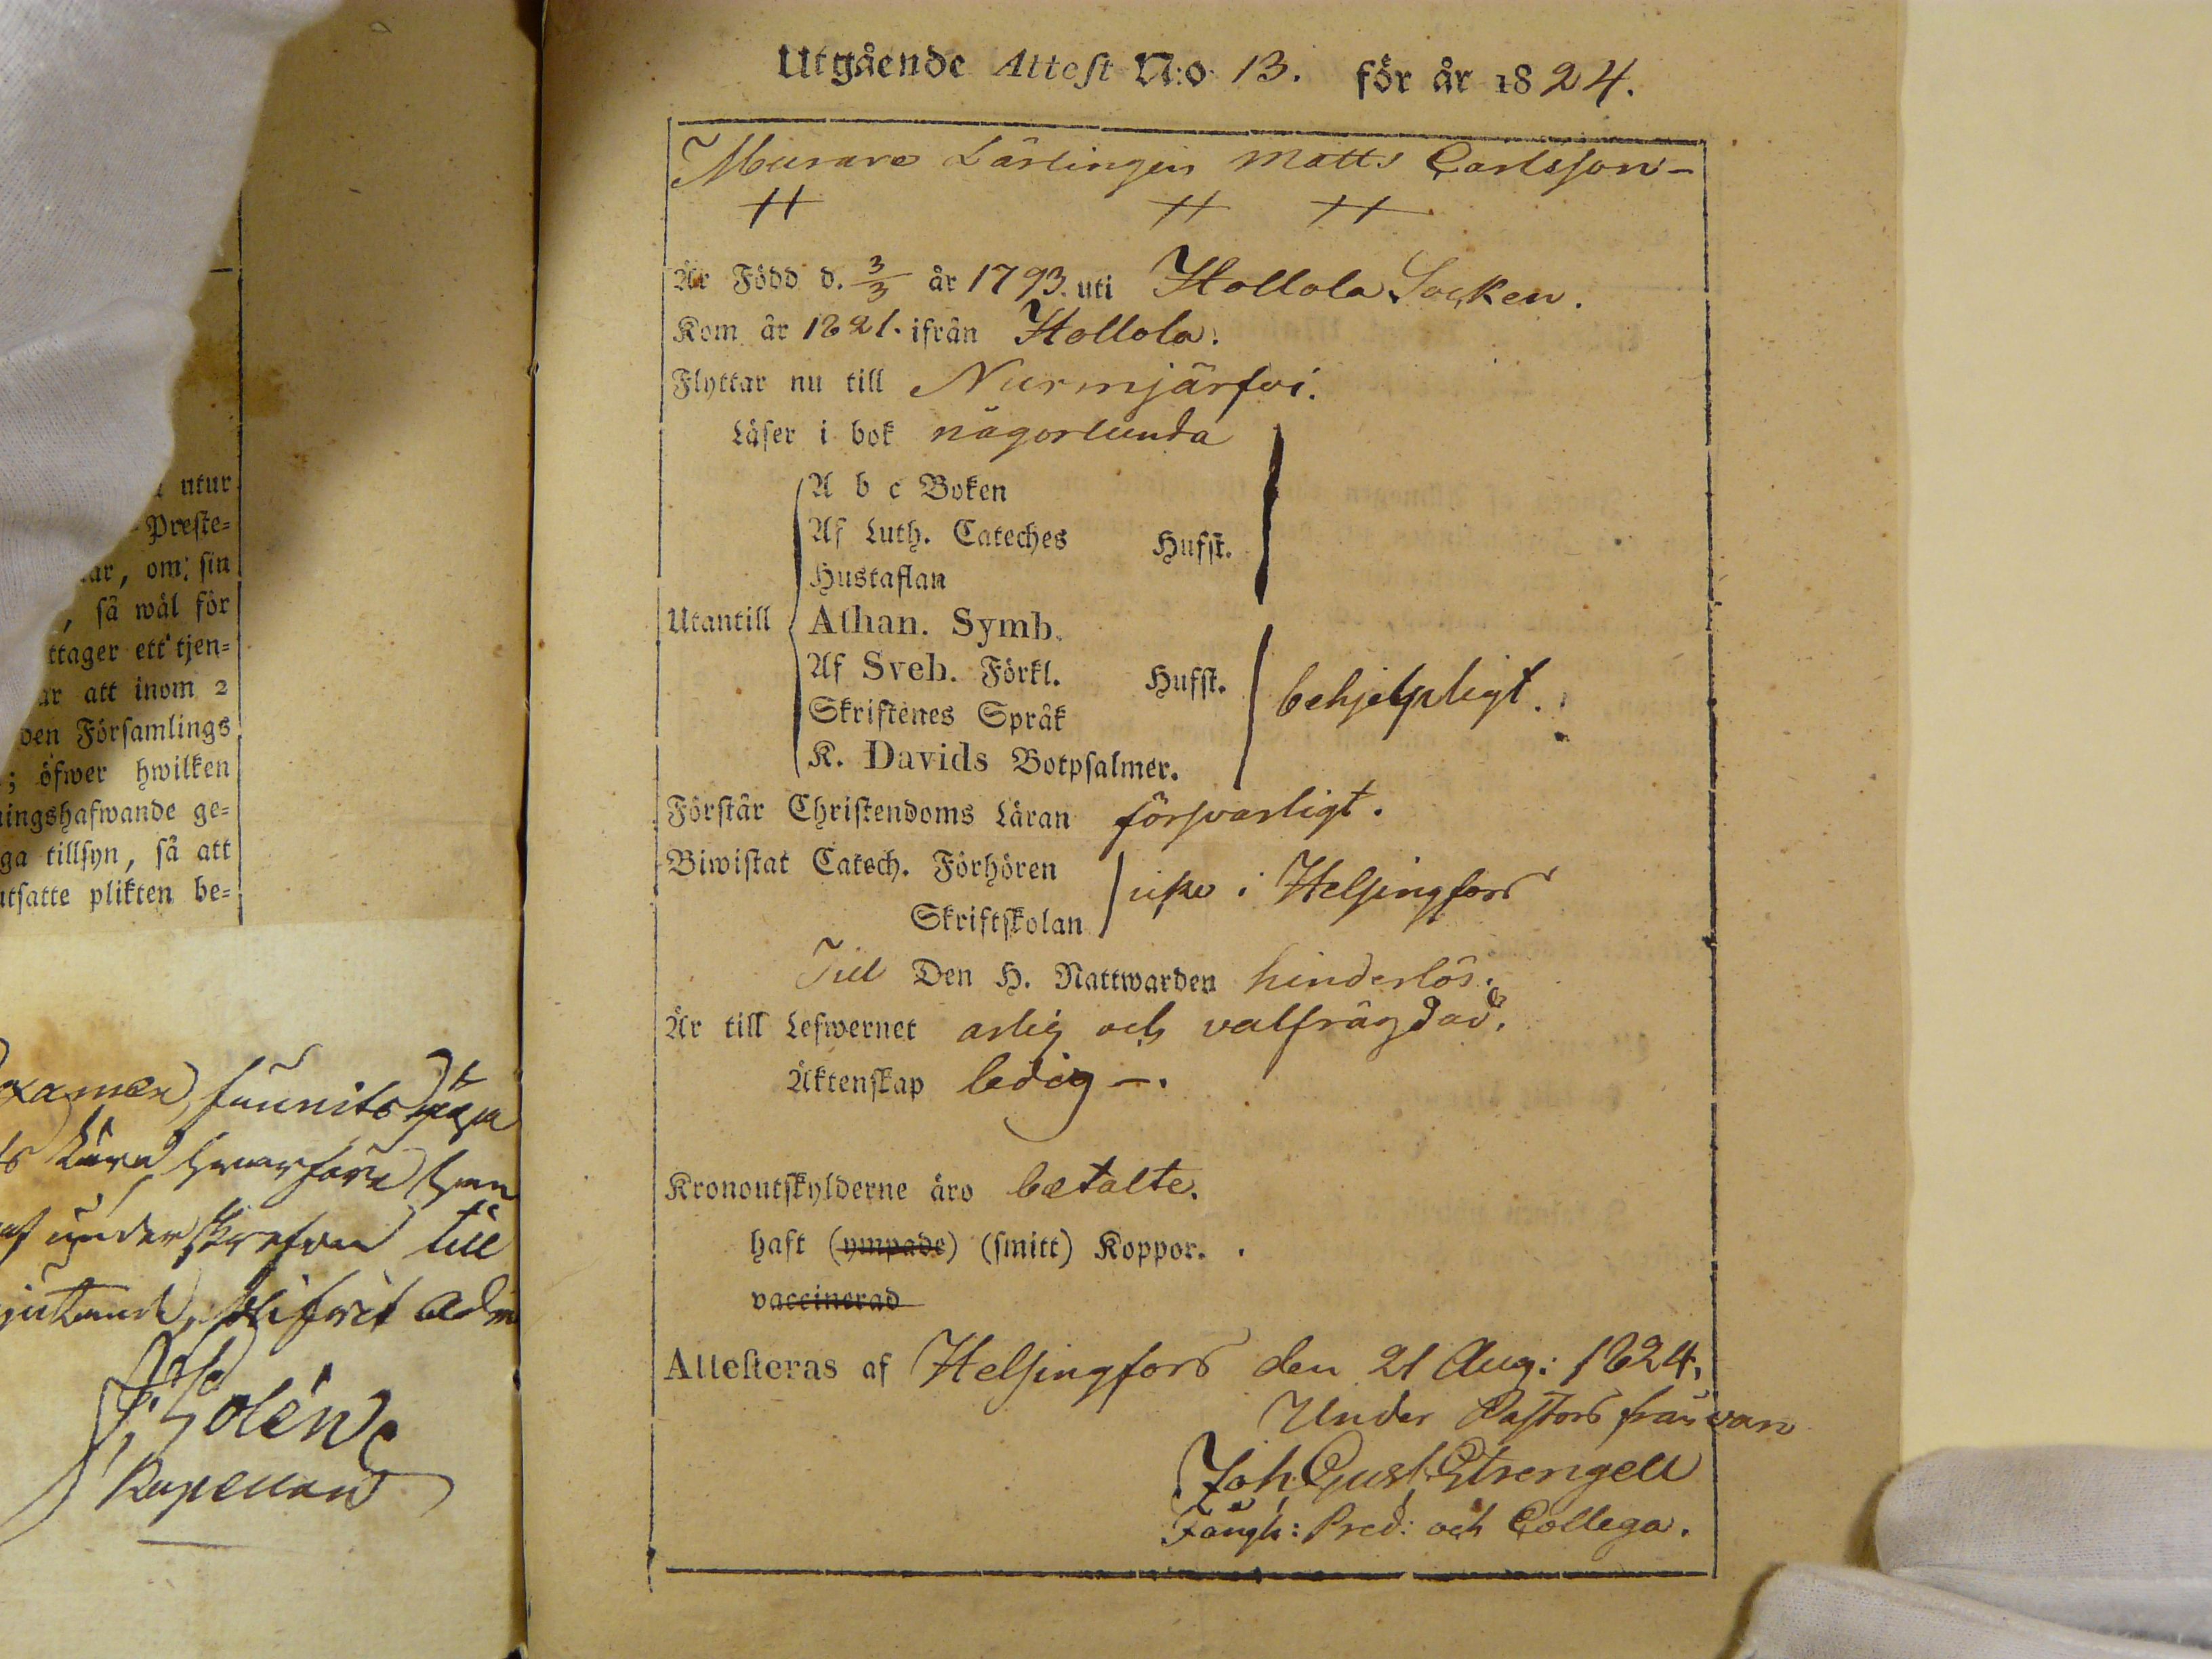 utur
Preste=
ar, om sin
, så wäl för
ttager ett tjen=
ar att inom 2
den Församlings
; öfwer hwilken
ningshafwande ge=
ga tillsyn, så att
utsatte plikten be=
examen funnits
hvarföre han
af underskrefven till
Kapellan
Utgående Attest N:o 13. för år 1824.
Murare Lärlingen Matts Carlsson -
Är Född d. 3/3 år 1793. uti Hollola Socken.
Kom år 1821. ifrån Hollola.
Flyttar nu till Nurmjärfvi.
Läser i bok någorlunda
A b c Boken
Af Luth. Cateches Hufst.
Hustaflan
Utantill Athan. Symb.
Af Sveb. Förkl. Hufst. behjelpligt.
Skriftenes Språk
K. Davids Botpsalmer.
Förstår Christendoms Läran försvarligt.
Biwistat Catech. Förhören
Skriftskolan icke i Helsingfors
Till Den H. Nattwarden hinderlös.
Är till Lefwernet ärlig och välfrägdad.
Äktenskap ledig -.
Kronoutskylderne äro betalte.
haft (ympade) (smitt) Koppor.
vaccinerad
Attesteras af Helsingfors den 21 Aug: 1824.
Under Pastors frånvaro
Joh. Gust. Strengell
Fängh: Pred: och Collega.